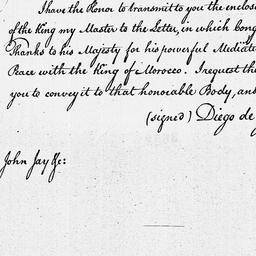 I have the Honor to transmit to you the enclose
of the King my Master to the Letter, in which Cong
Thanks to his Majesty for his powerful Mediate
Peace with the King of Morocco. I request the
you to convey it to that honorable Body, and
(signed) Diego de
John Jay &c: